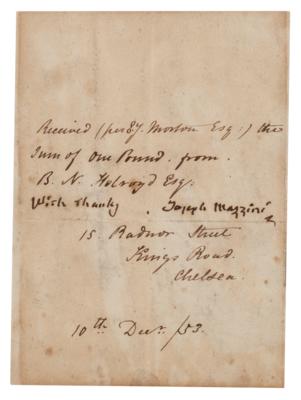 Received (per E. J. Morton Esq:) the
Sum of One Pound. from
B. N. Holroyd Esq.
With thanks. Joseph Mazzini
15 Radnor Street
Kings Road.
Chelsea.
10th Decr. /53.